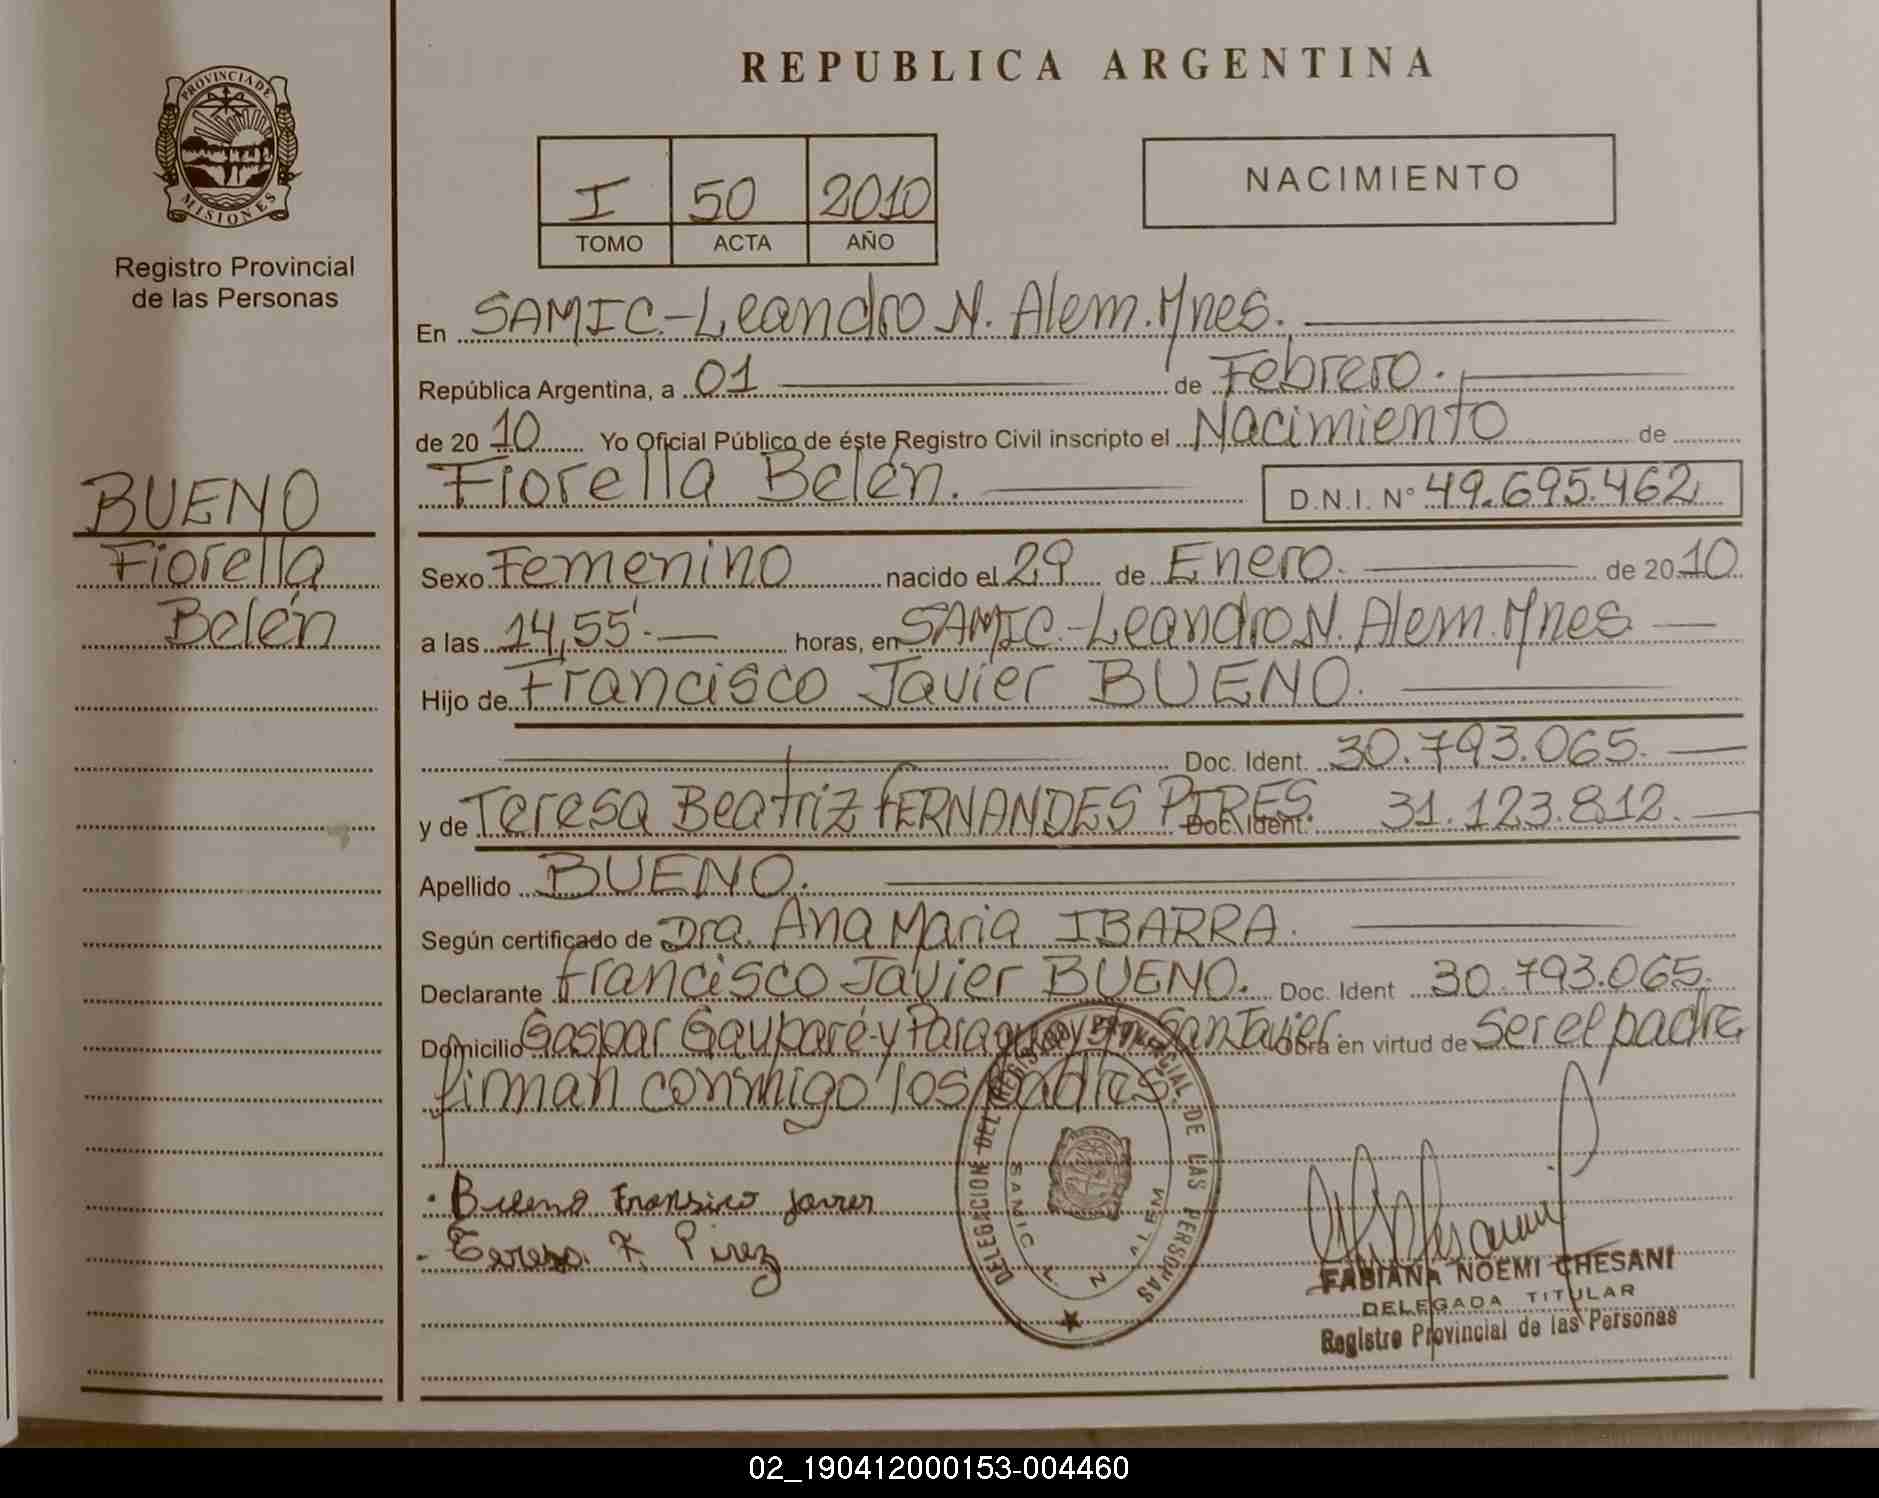 REPUBLICA ARGENTINA
PROVINCIA DE
MISIONES
Registro Provincial
de las Personas
I 50 2010
TOMO ACTA AÑO
NACIMIENTO
En SAMIC-Leandro N. Alem. Mnes.
República Argentina, a 01 de Febrero.
de 2010 Yo Oficial Público de éste Registro Civil inscripto el Nacimiento de
Fiorella Belén. D.N.I. N° 49.695.462
BUENO
Fiorella
Belén
Sexo Femenino nacido el 29 de Enero. de 2010
a las 14,55'. horas, en SAMIC-Leandro N. Alem. Mnes.
Hijo de Francisco Javier BUENO.
Doc. Ident. 30.793.065.
y de Teresa Beatriz FERNANDES PIRES. Doc. Ident. 31.123.812.
Apellido BUENO.
Según certificado de Dra. Ana Maria IBARRA.
Declarante Francisco Javier BUENO. Doc. Ident 30.793.065.
Domicilio Gaspar Gauparé y Paraguay San Javier. Obra en virtud de Ser el padre
firman conmigo los padres.
Bueno Fransico Javier
Teresa F. Pirez
DELEGACION DEL REGISTRO PROVINCIAL DE LAS PERSONAS
SAMIC L. N. ALEM
FABIANA NOEMI CHESANI
DELEGADA TITULAR
Registro Provincial de las Personas
02_190412000153-004460